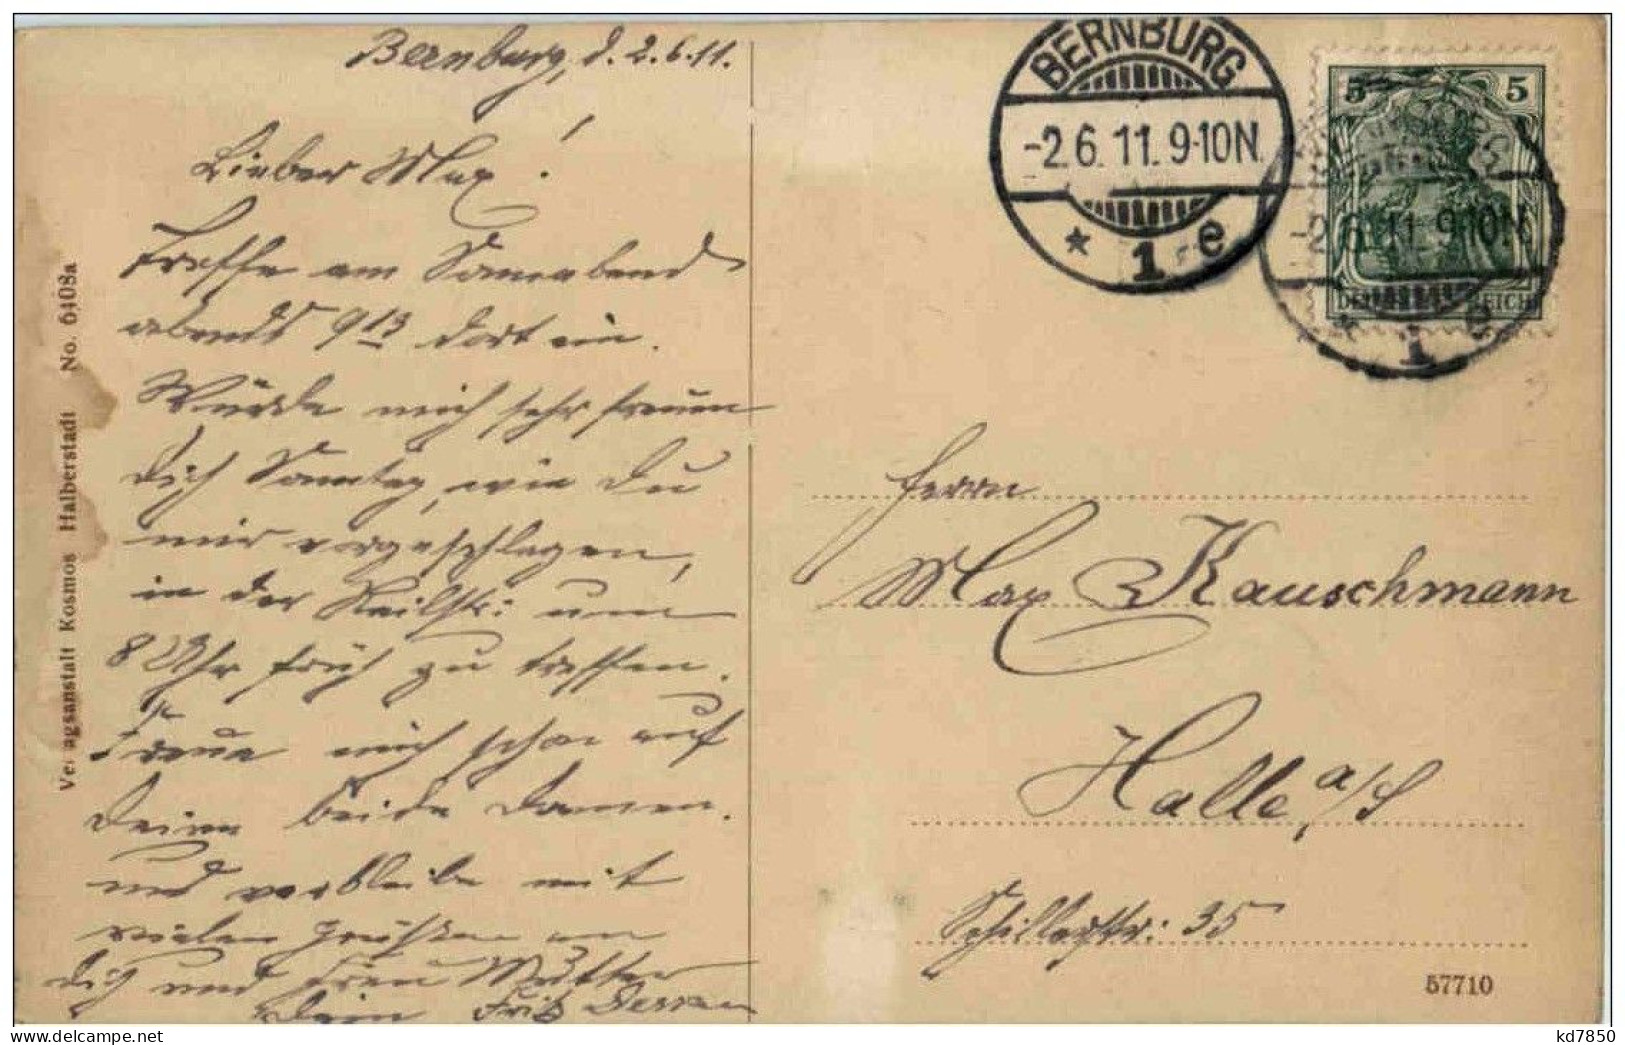 Bernburg, d. 2.6.11.
Lieber Max!
Treffe am Sonnabend
abends 9 13 dort ein.
Würde mich sehr freuen
Dich Sonntag, wie Du
mir vorgeschlagen,
in der Reilstr: um
8 Uhr früh zu treffen.
Freue mich schon auf
Deine beide Damen.
und verbleibe mit
vielen Grüßen an
Dich und Frau Mutter
Dein Fritz
Verlagsanstalt Kosmos Halberstadt No. 6408a
BERNBURG
-2.6.11.9-10N.
* 1 e
5 5
DEUTSCHES REICH
-2.6.11.9-10N.
* 1 e
Herrn
Max Rauschmann
Halle a/S
Schillerstr: 35
57710
delcampe.net
kd7850